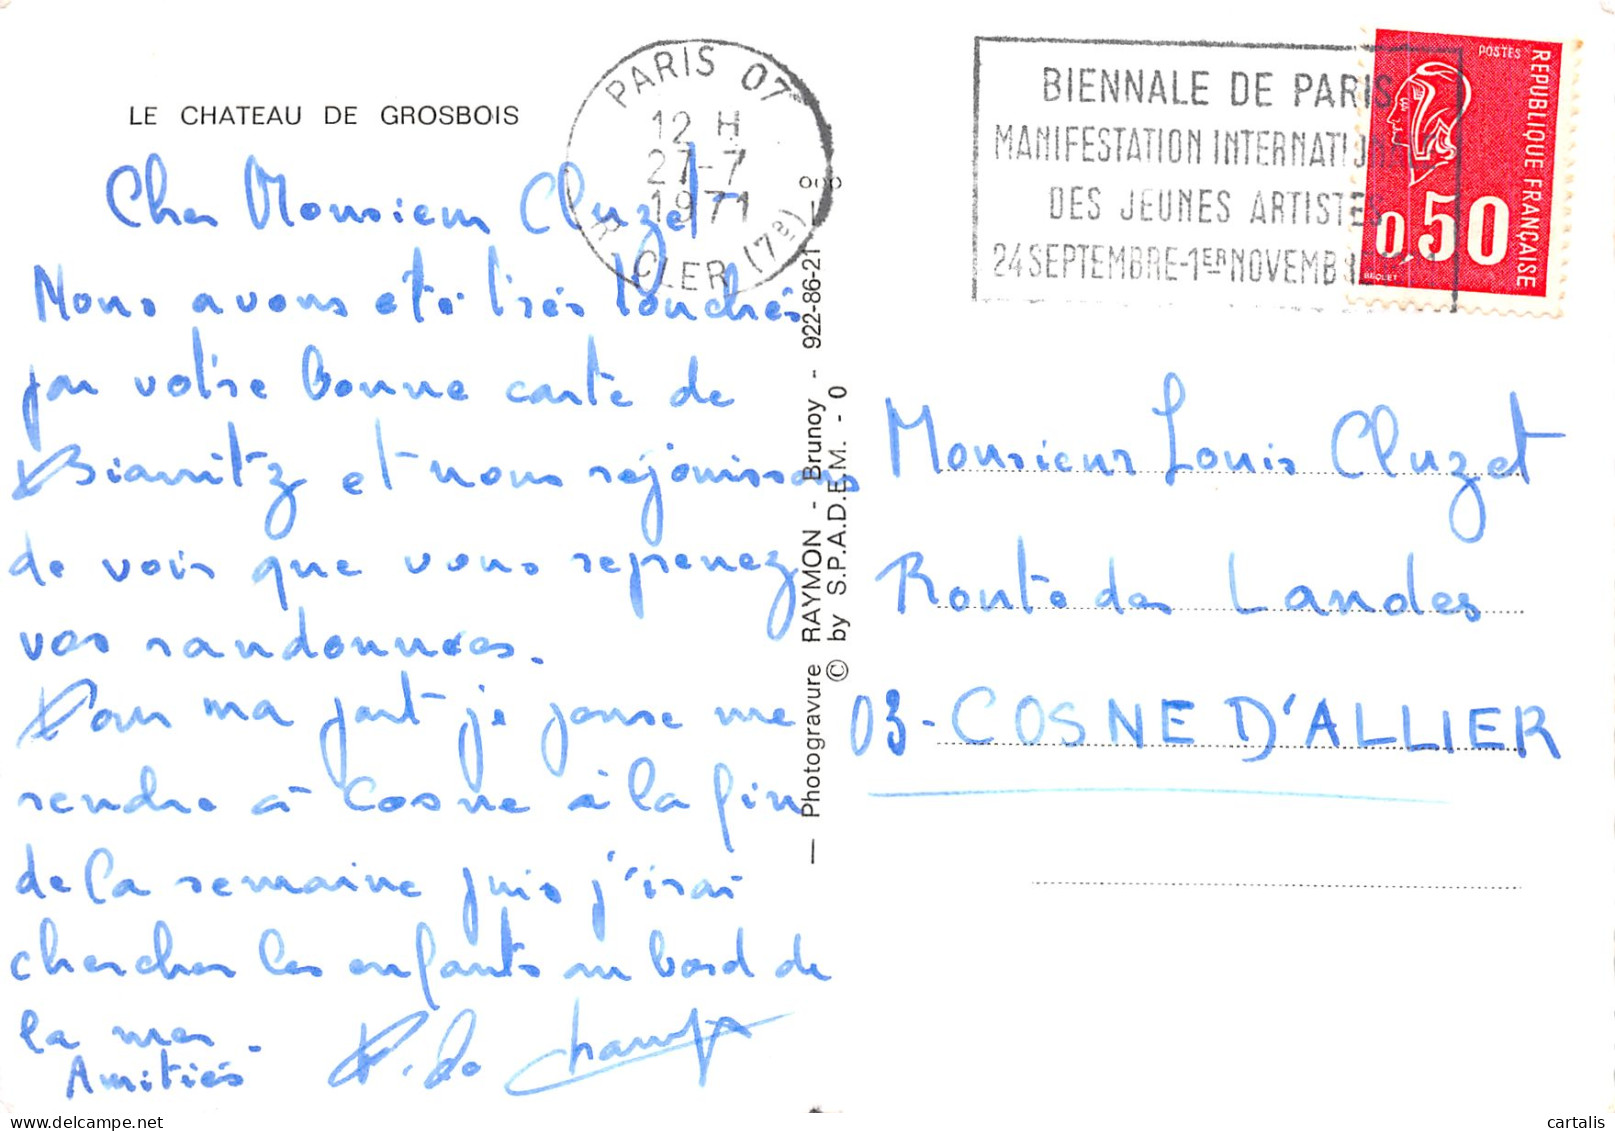 LE CHATEAU DE GROSBOIS
Cher Monsieur Cluzet
Nous avons été très touchés
par votre bonne carte de
Biarritz et nous réjouissons
de voir que vous reprenez
vos randonnées.
Pour ma part je pense me
rendre à Cosne à la fin
de la semaine puis j'irai
chercher les enfants au bord de
la mer.
Amitiés
PARIS 07
12 H
27-7
1971
R. CLER (7e)
BIENNALE DE PARIS
MANIFESTATION INTERNATIONALE
DES JEUNES ARTISTES
24 SEPTEMBRE-1ER NOVEMBRE
POSTES
REPUBLIQUE FRANÇAISE
0,50
BEQUET
— Photogravure RAYMON - Brunoy - 922-86-21 —
© by S.P.A.D.E.M. - 0
Monsieur Louis Cluzet
Route des Landes
03 - COSNE D'ALLIER
cartalis